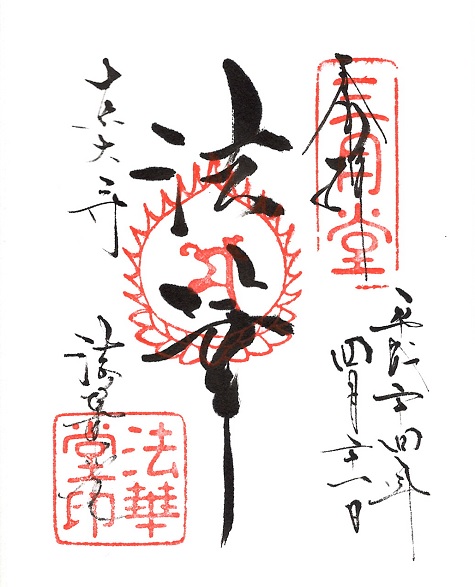 奉拝
三月堂
平成二十四年
四月二十一日
法華
東大寺
法華堂
法華堂印